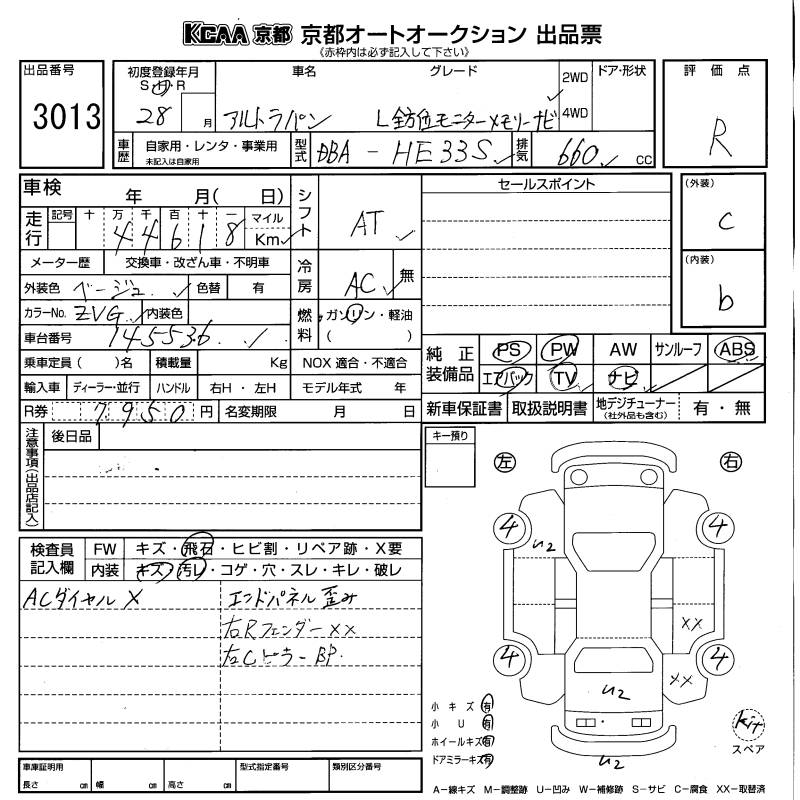 KCAA 京都 京都オートオークション 出品票
《赤枠内は必ず記入して下さい》
出品番号
3013
初度登録年月
S・H・R
28 月
車名 グレード
アルトラパン L全方位モニターメモリーナビ
2WD
4WD
ドア・形状
評価点
R
車歴 自家用・レンタ・事業用
未記入は自家用
型式 DBA - HE33S
排気 660 cc
車検 年 月( 日)
走行 記号 十 万 千 百 十 一 マイル
4 4 6 1 8 Km
メーター歴 交換車・改ざん車・不明車
外装色 ベージュ 色替 有
カラーNo. ZVG 内装色
車台番号 145536
乗車定員( )名 積載量 Kg
NOX 適合・不適合
輸入車 ディーラー・並行 ハンドル 右H・左H
モデル年式 年
R券 7950 円 名変期限 月 日
シフト AT
冷房 AC 無
燃料 ガソリン・軽油
( )
セールスポイント
(外装)
C
(内装)
b
純正装備品 PS PW AW サンルーフ ABS
エアバック TV ナビ
新車保証書 取扱説明書 地デジチューナー
(社外品も含む)
有・無
注意事項(出品店記入)
後日品
キー預り
左 右
4 4
U2
XX
4 4
XX
U2
U2
検査員記入欄
FW キズ・飛石・ヒビ割・リペア跡・X要
内装 キズ・汚レ・コゲ・穴・スレ・キレ・破レ
ACダイヤル X
エンドパネル歪み
右Rフェンダー XX
左Cピラー BP.
小キズ 有
小U 有
ホイールキズ 有
ドアミラーキズ 有
kit
スペア
車庫証明用
長さ cm 幅 cm 高さ cm
型式指定番号
類別区分番号
A−線キズ M−調整跡 U−凹み W−補修跡 S−サビ C−腐食 XX−取替済